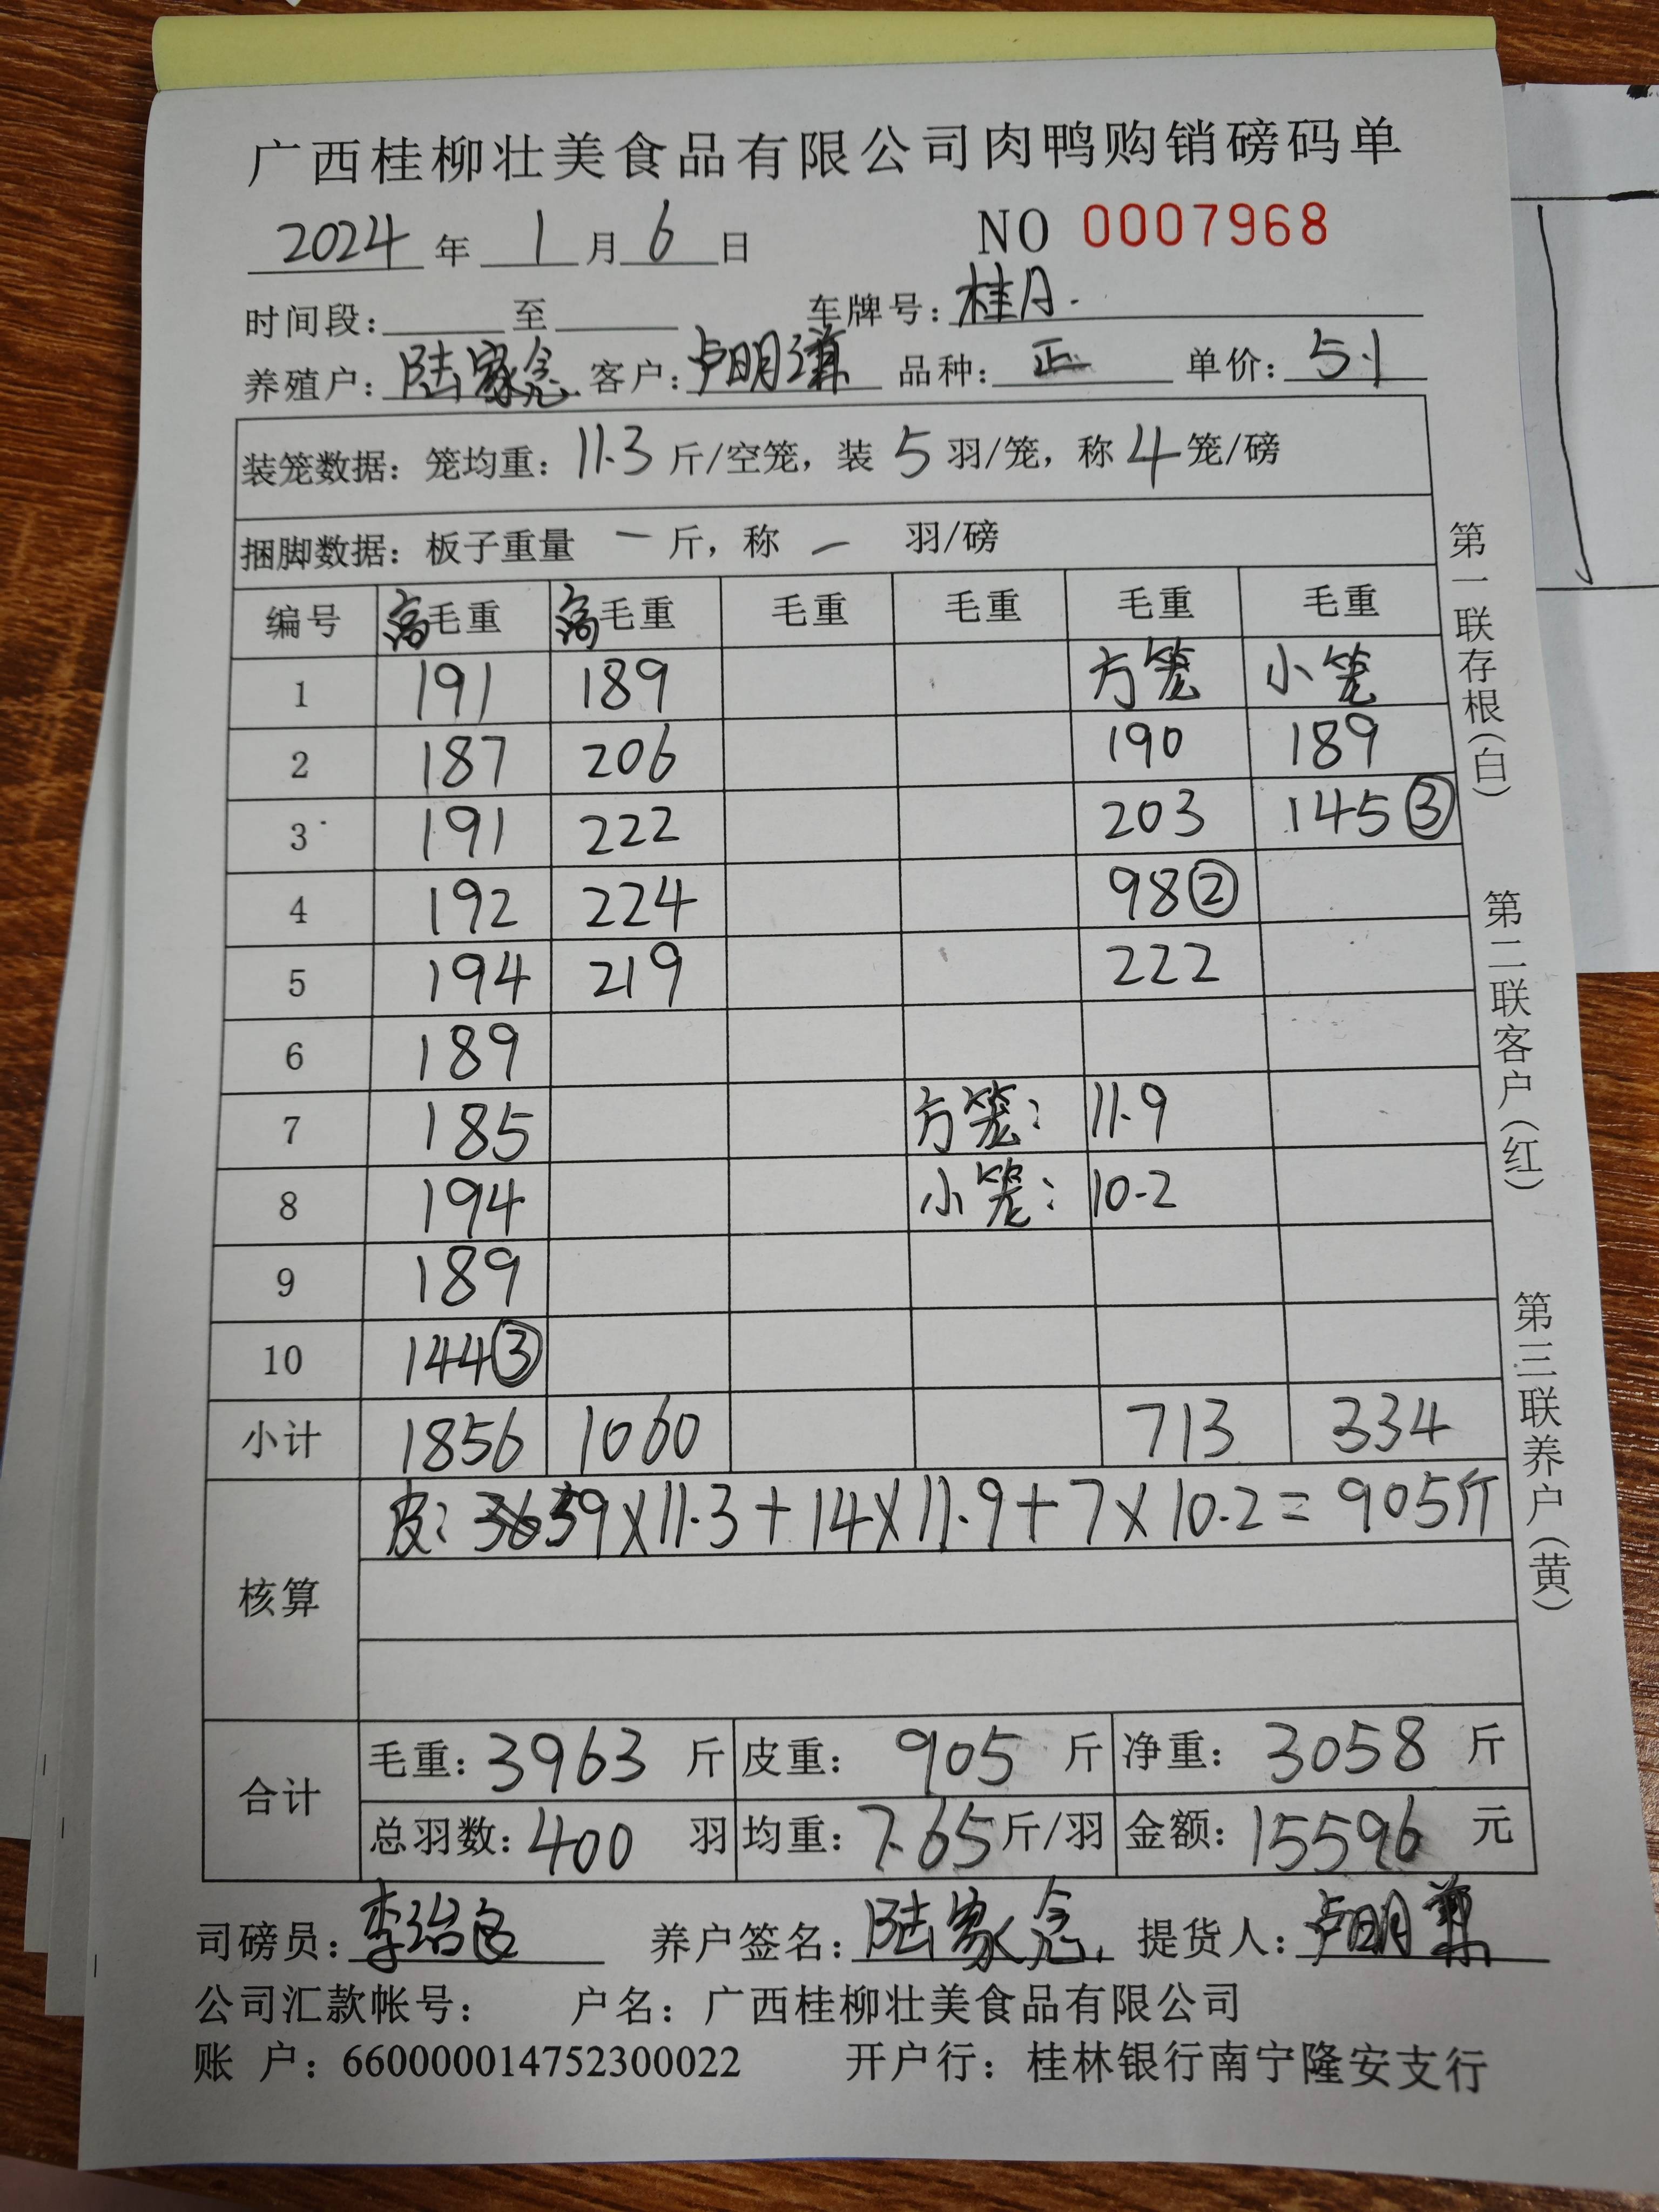 广西桂柳壮美食品有限公司肉鸭购销磅码单
2024 年 1 月 6 日 NO 0007968
时间段: 至 车牌号: 桂A.
养殖户: 陆家念 客户: 卢明 品种: 正 单价: 5.1
装笼数据: 笼均重: 11.3 斤/空笼, 装 5 羽/笼, 称 4 笼/磅
捆脚数据: 板子重量 一 斤, 称 一 羽/磅
编号 高毛重 高毛重 毛重 毛重 毛重 毛重
1 191 189 方笼 小笼
2 187 206 190 189
3 191 222 203 145③
4 192 224 98②
5 194 219 222
6 189
7 185 方笼: 11.9
8 194 小笼: 10.2
9 189
10 144③
小计 1856 1060 713 334
核算 皮: 59×11.3+14×11.9+7×10.2=905斤
合计 毛重: 3963 斤 皮重: 905 斤 净重: 3058 斤
总羽数: 400 羽 均重: 7.65 斤/羽 金额: 15596 元
司磅员: 李治 养户签名: 陆家念 提货人: 卢明
公司汇款帐号: 户名: 广西桂柳壮美食品有限公司
账 户: 660000014752300022 开户行: 桂林银行南宁隆安支行
第一联存根(白) 第二联客户(红) 第三联养户(黄)